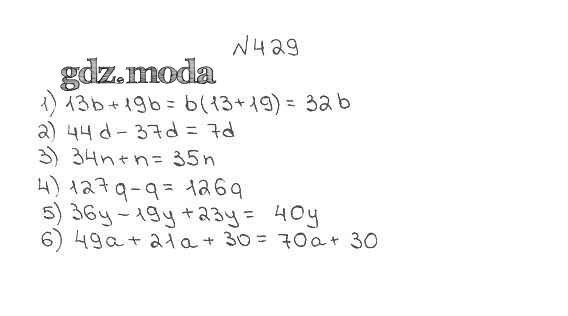 №429
gdz.moda
1) 13b+19b=b(13+19)=32b
2) 44d-37d=7d
3) 34n+n=35n
4) 127q-q=126q
5) 36y-19y+23y= 40y
6) 49a+21a+30=70a+30